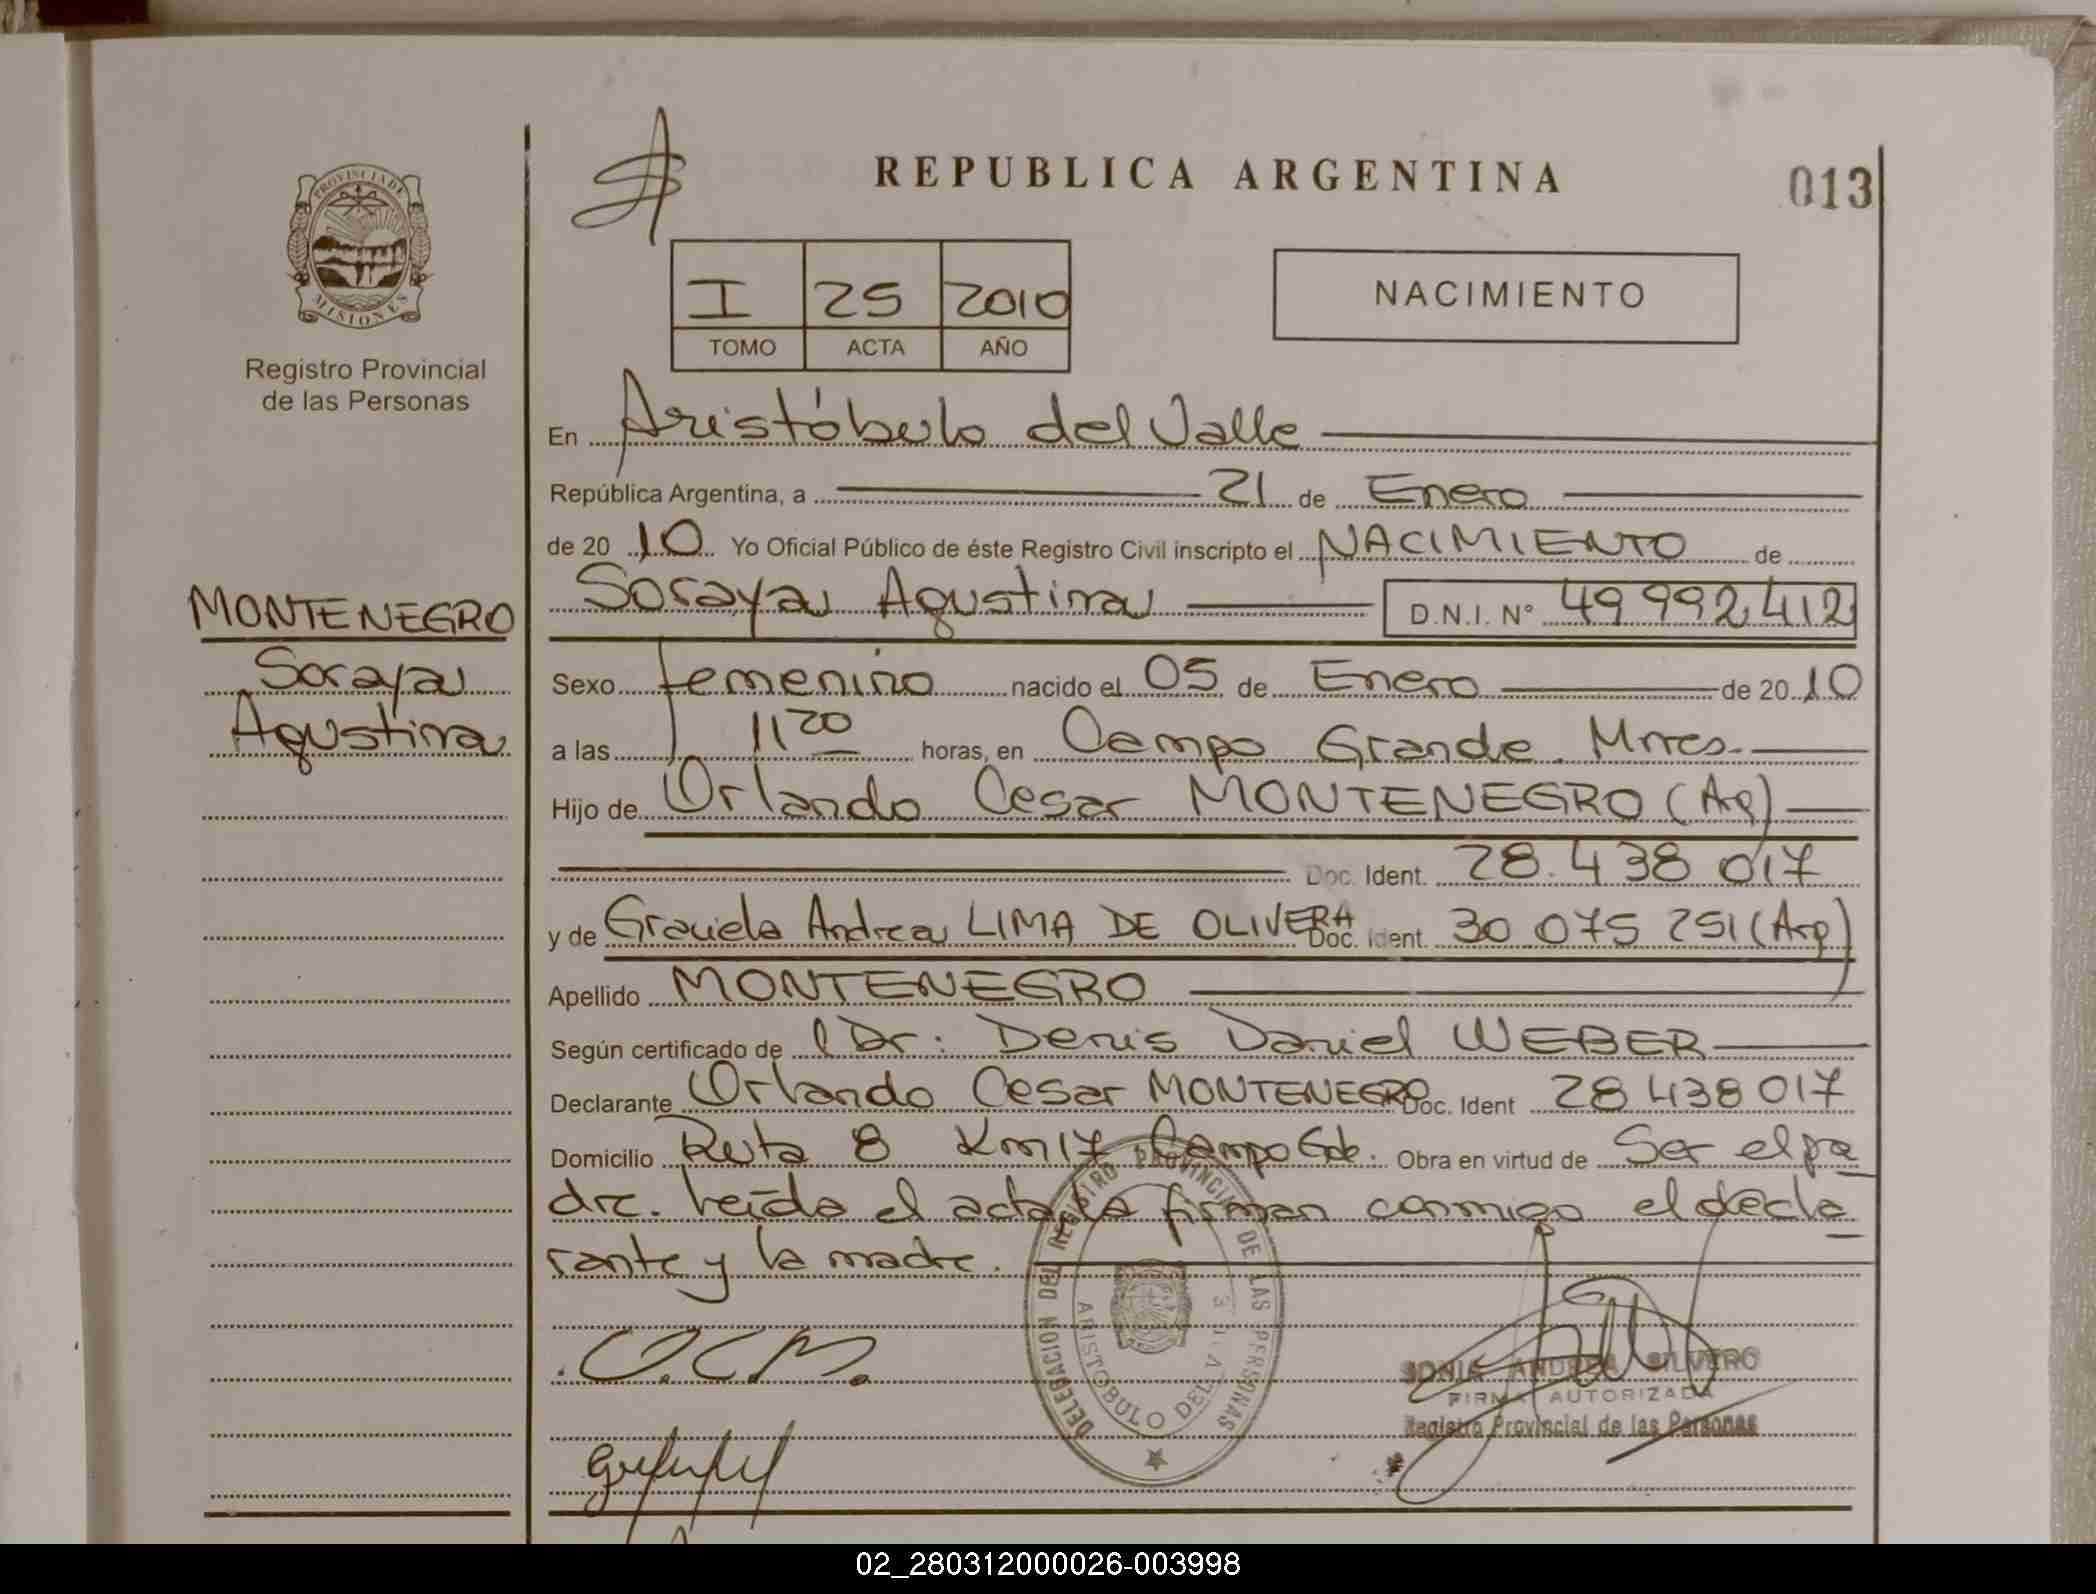 REPUBLICA ARGENTINA
013
PROVINCIA DE
MISIONES
Registro Provincial
de las Personas
I 25 2010
TOMO ACTA AÑO
NACIMIENTO
En Aristóbulo del Valle
República Argentina, a 21 de Enero
de 20 10 Yo Oficial Público de éste Registro Civil inscripto el NACIMIENTO de
Soraya Agustina D.N.I. Nº 49 992 412
MONTENEGRO
Soraya
Agustina
Sexo femenino nacido el 05 de Enero de 20 10
a las 11 20 horas, en Campo Grande. Mnes.
Hijo de Orlando Cesar MONTENEGRO (Ag)
Doc. Ident. 28.438 017
y de Graciela Andrea LIMA DE OLIVERA Doc. Ident. 30 075 251 (Arg)
Apellido MONTENEGRO
Según certificado de l Dr. Denis Daniel WEBER
Declarante Orlando Cesar MONTENEGRO Doc. Ident 28 438 017
Domicilio Ruta 8 Km 17 Campo Gde. Obra en virtud de Ser el pa
dre. Leída el acta la firman conmigo el decla
rante y la madre.
O.C.M.
DELEGACION DEL REGISTRO PROVINCIAL DE LAS PERSONAS
ARISTOBULO DEL
SONIA ANDREA SILVERO
FIRMA AUTORIZADA
Registro Provincial de las Personas
02_280312000026-003998